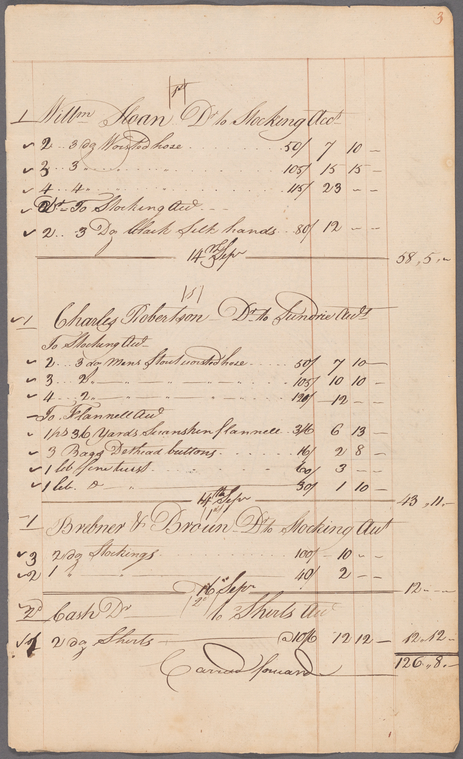 3
1st
1 Willm Sloan Dr to Stocking Acct
2 .. 3 dg Worsted hose 50/ 7 10 –
3 .. 3 " 105/ 15 15 –
4 .. 4 " 115/ 23 – –
Dr To Stocking Acct
2 .. 3 Dg black Silk hands 80/ 12 – –
14 Sepr 58 „ 5 „ –
1 Charles Robertson Dr to Sundrie Accts
To Stocking Acct
2 .. 3 dg Mens Stout worsted hose 50/ 7 10 –
3 .. 2 " 105/ 10 10 –
4 .. 2 " 120/ 12 – –
To Flannell Acct
1 ps 36 Yards Swanskin flannell 3/6 6 13 –
3 Bagg Dethread buttons 16/ 2 8 –
1 lib 60/ 3 – –
1 lib. 30/ 1 10 –
14th Sepr 43 „ 11 „ –
1 Brebner & Broun Dr to Stocking Acct
3 2 dg Stockings 100/ 10 – –
2 1 " 40/ 2 – –
16 Sepr 12 – –
2d Cash Dr to Shirts Acct
1 2 dg Shirts @ 10/6 12 12 – 12 „ 12 –
126 „ 8 „ –
Carried forward